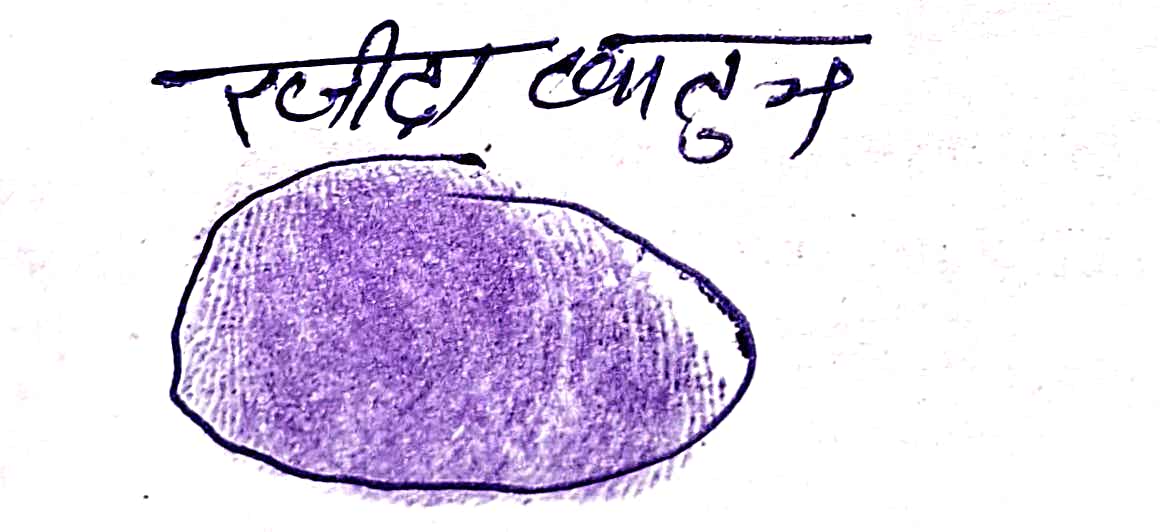 रजीदा खातुन